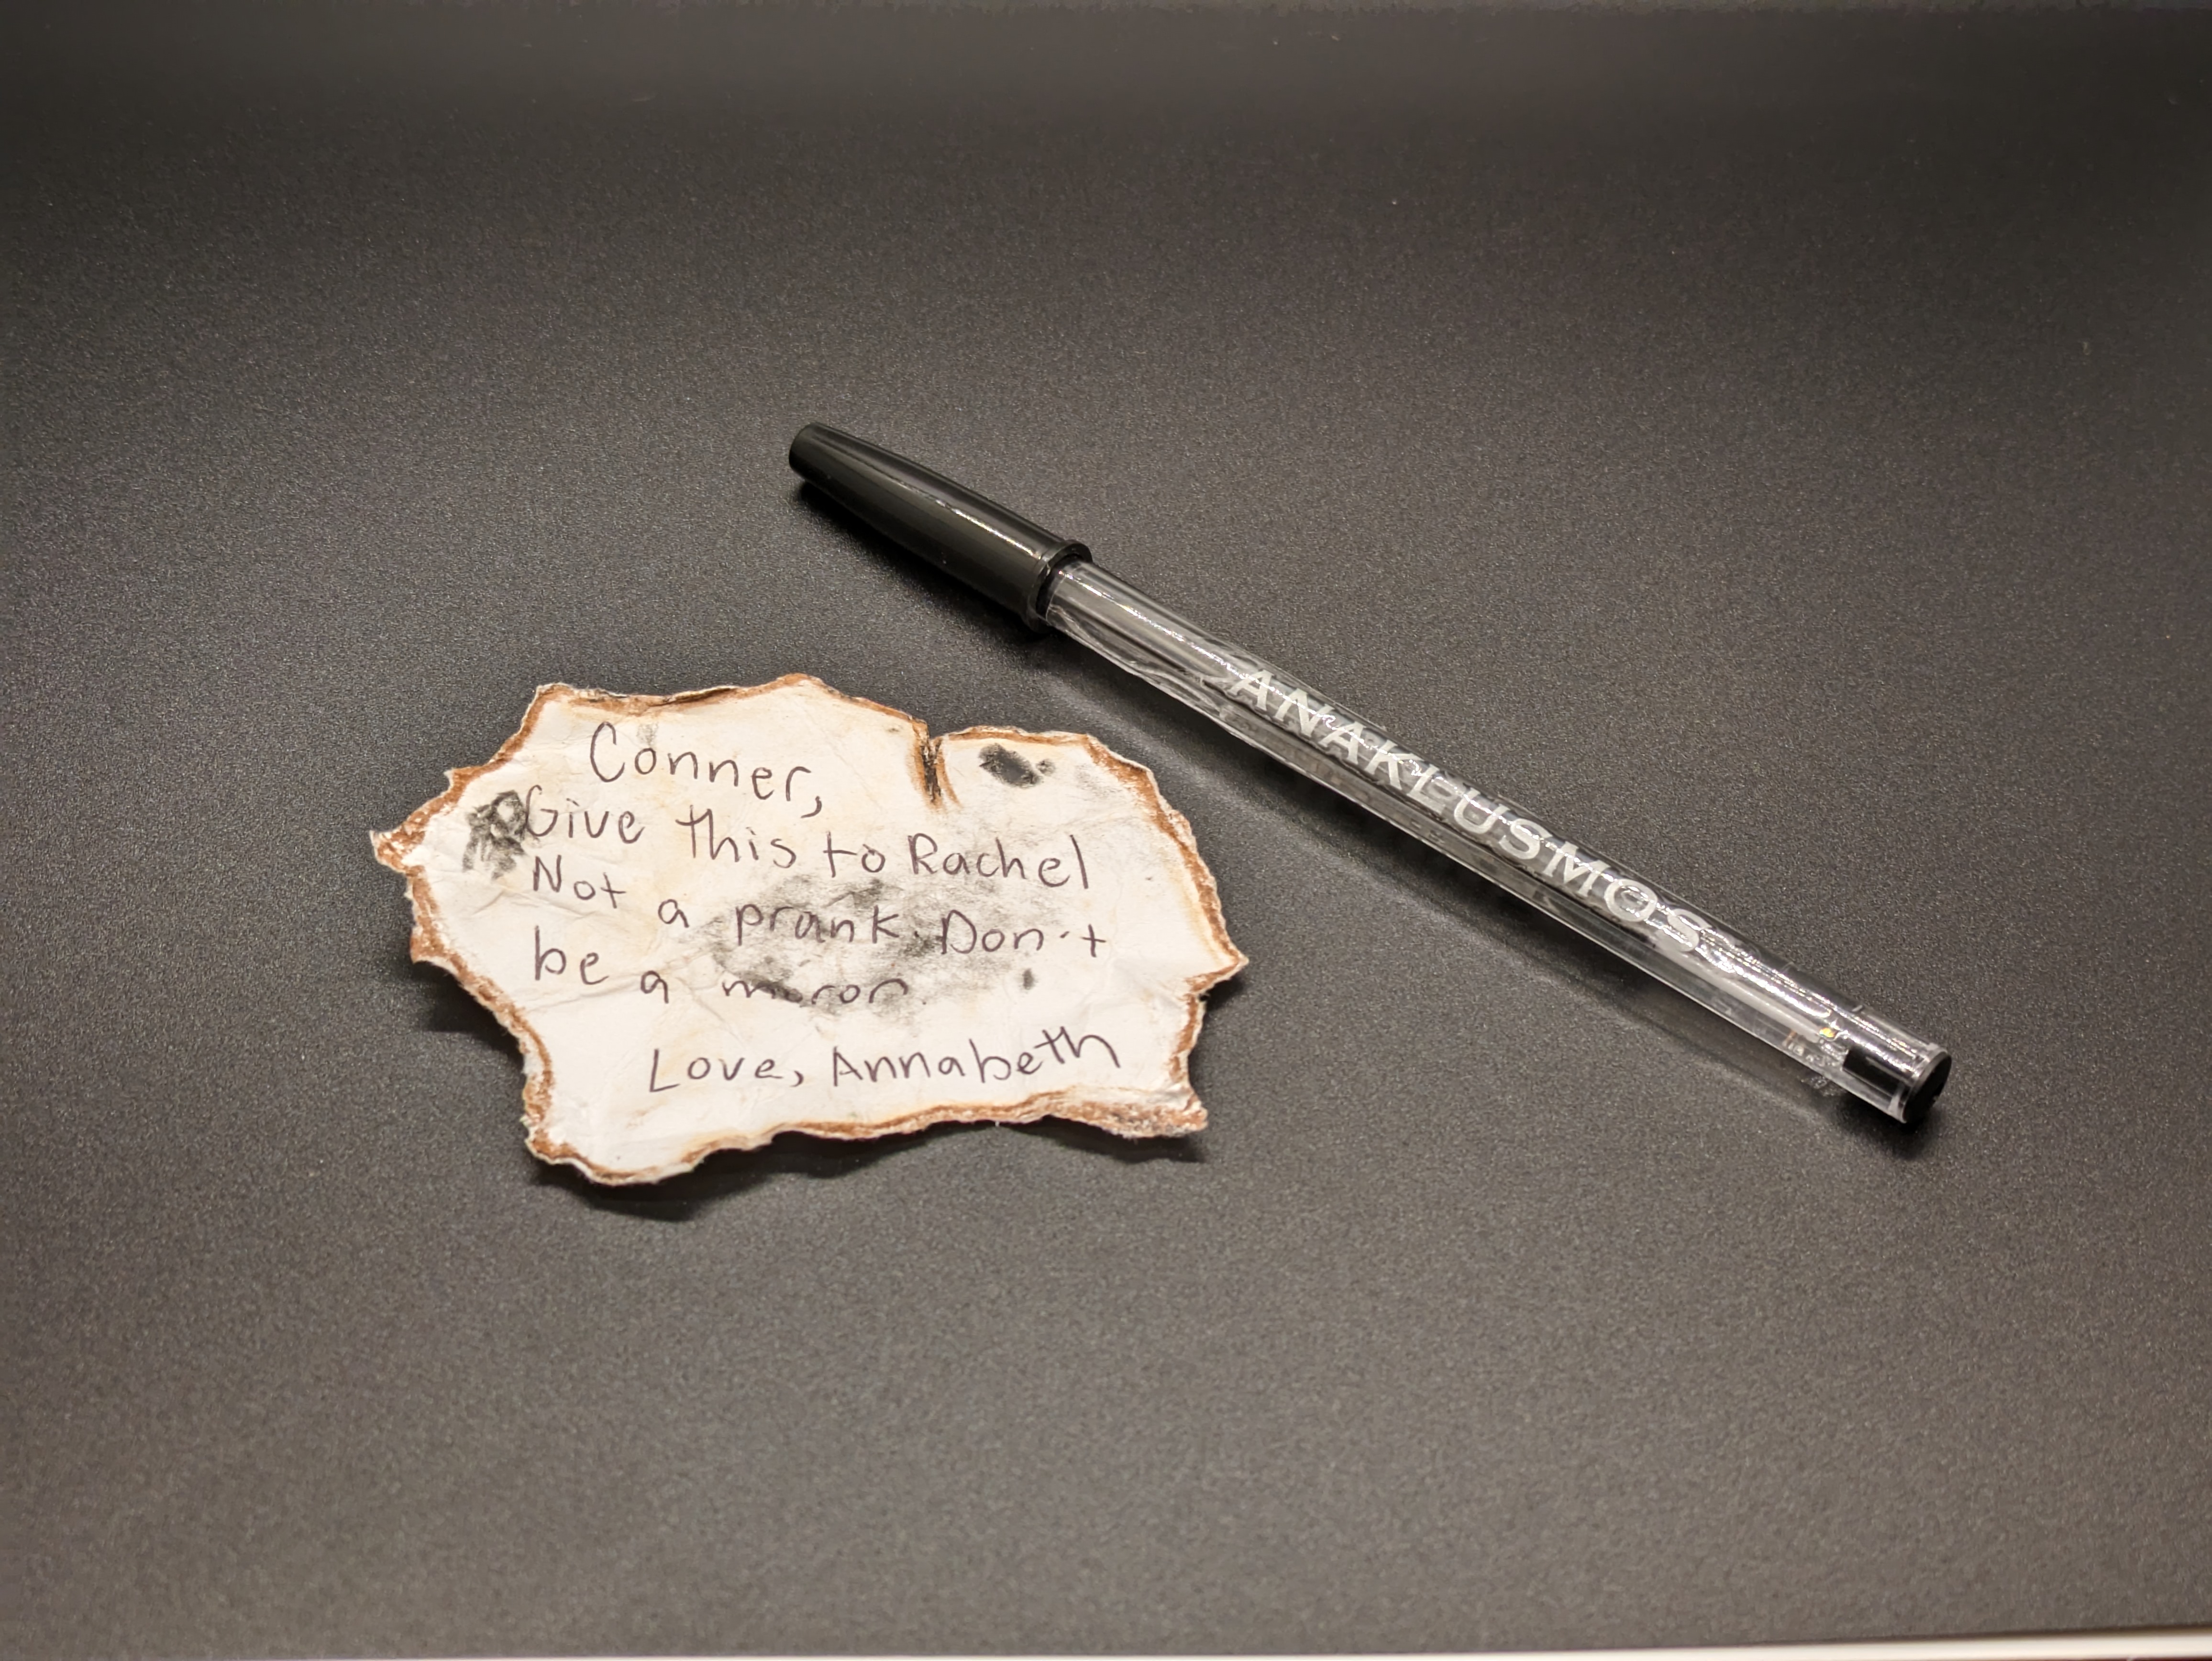 Conner,
Give this to Rachel
Not a prank. Don't
be a moron.
Love, Annabeth
ANAKLUSMOS